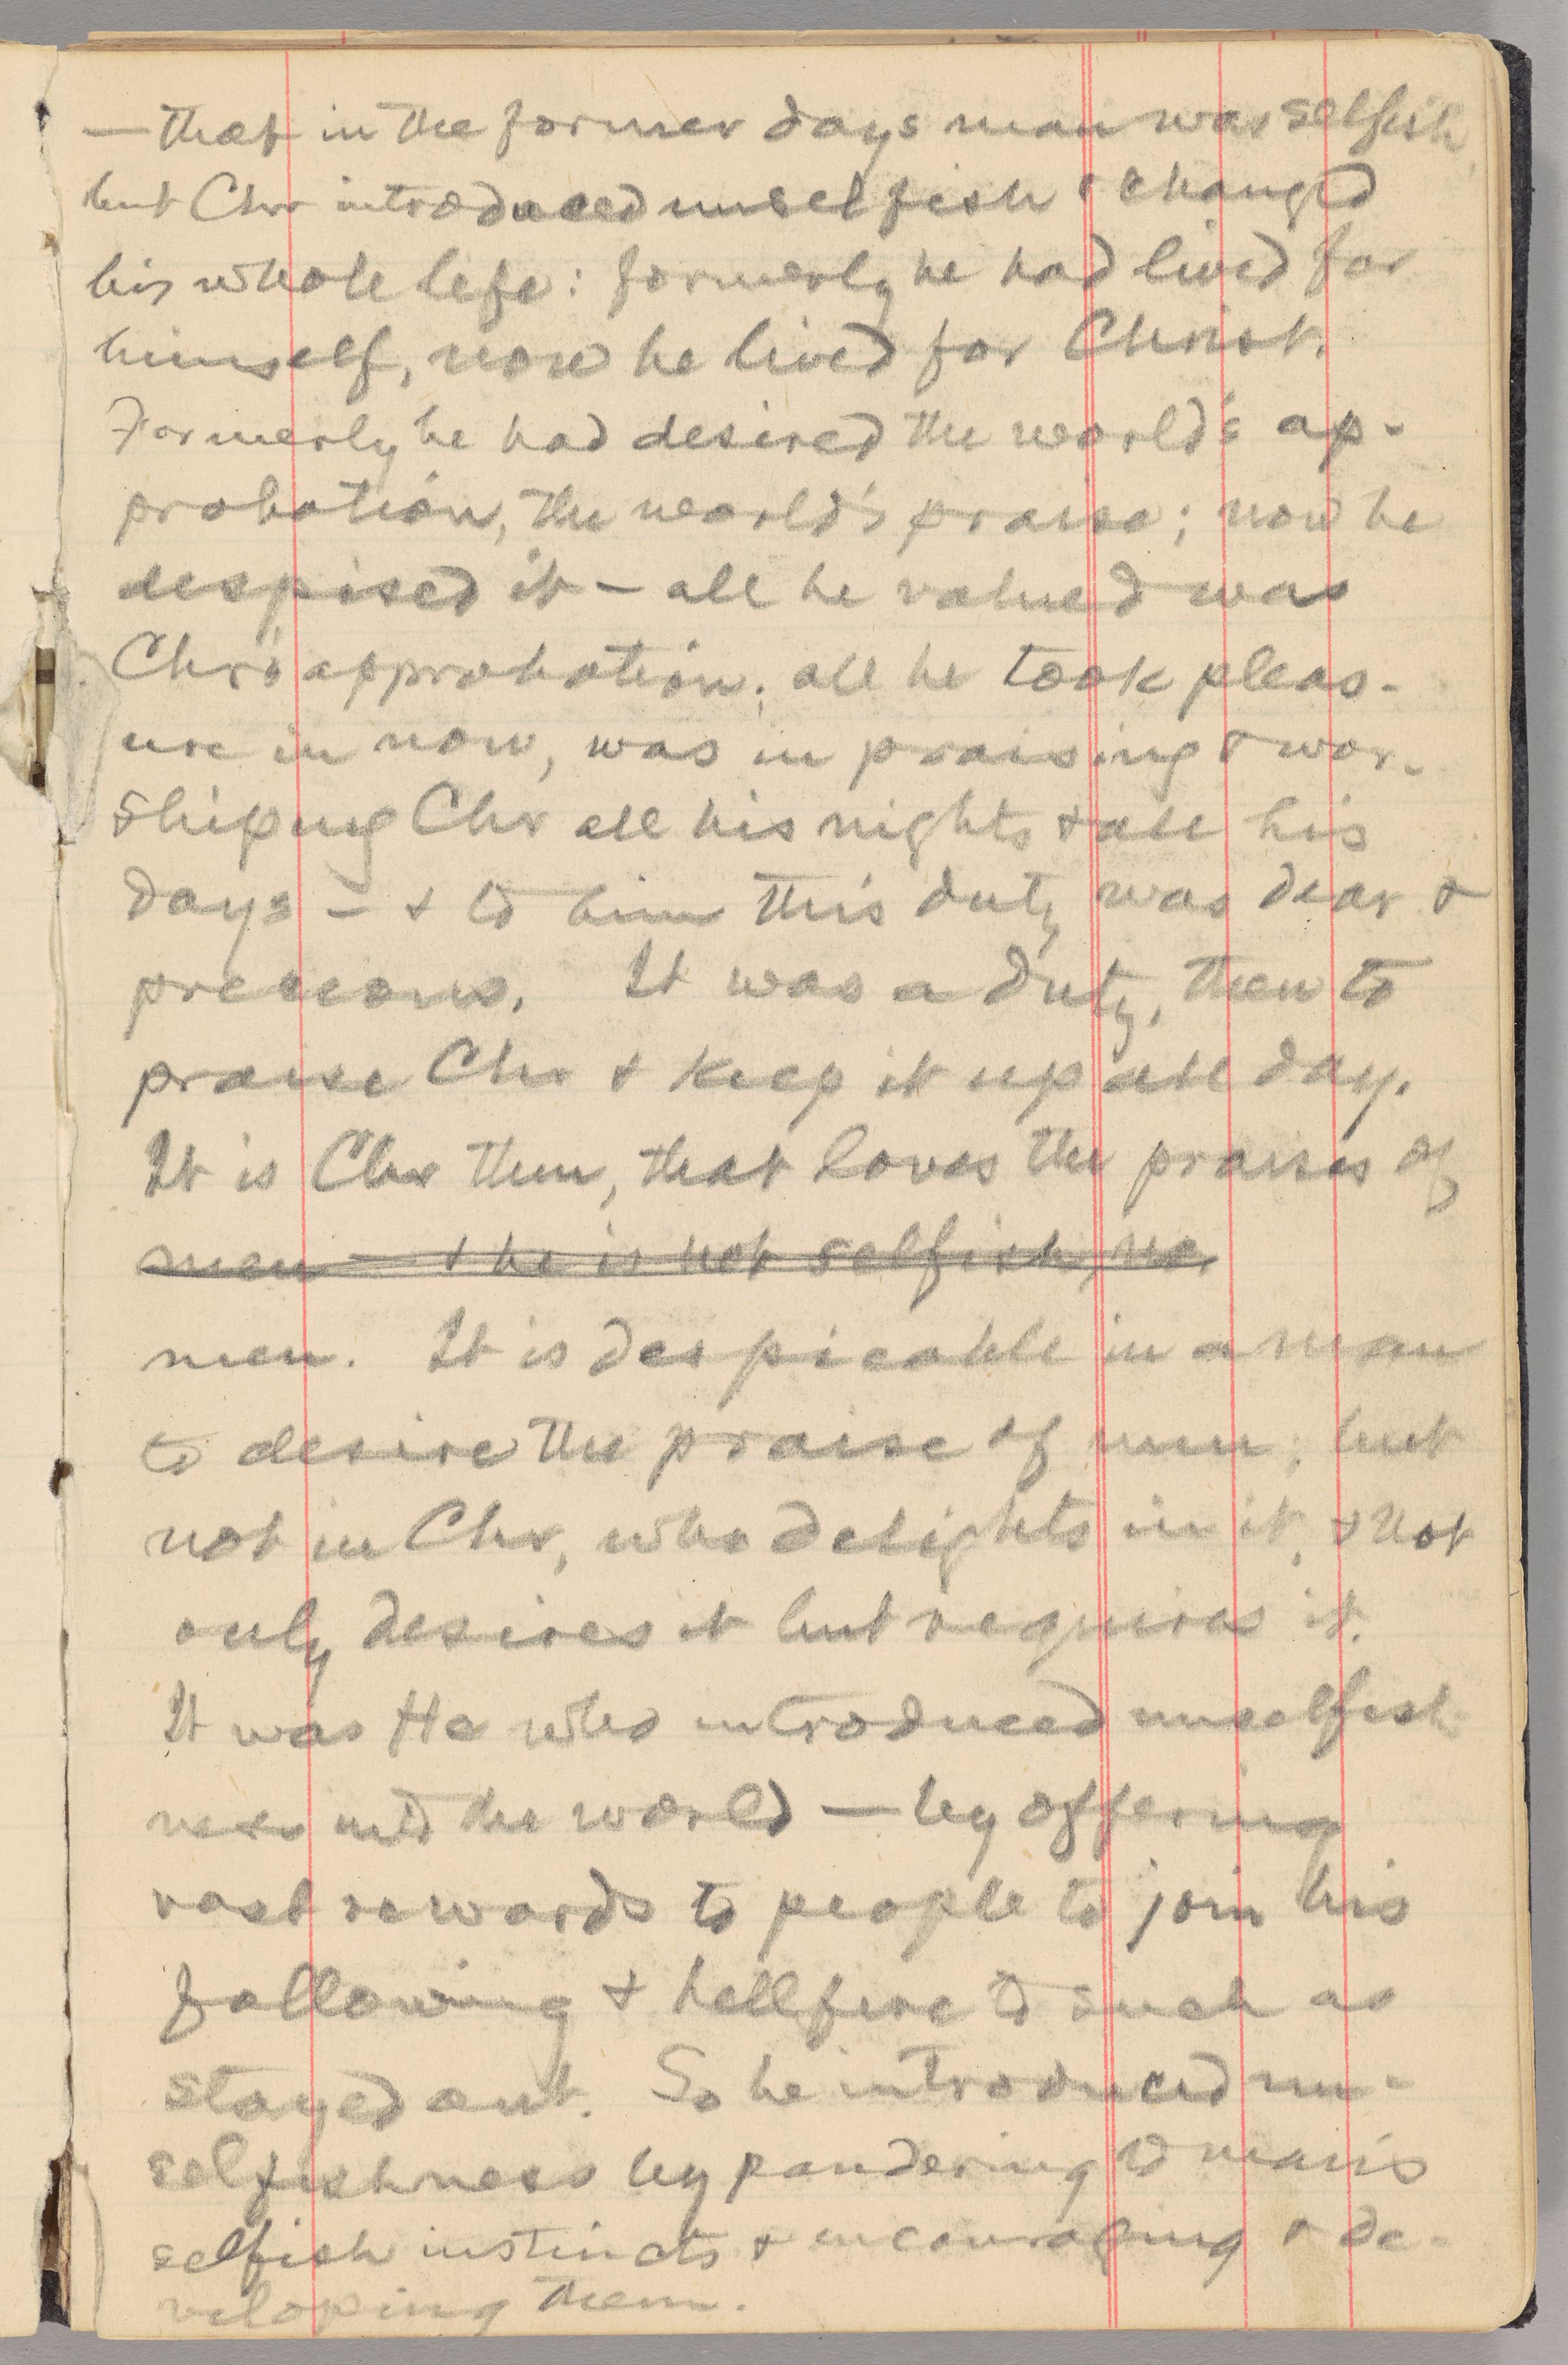 — that in the former days man was selfish
but Chr introduced unselfish & changed
his whole life: formerly he had lived for
himself, now he lived for Christ.
Formerly he had desired the world's ap-
probation, the world's praise; now he
despised it — all he valued was
Chr's approbation; all he took pleas-
ure in now, was in praising & wor-
shiping Chr all his nights & all his
days — & to him this duty was dear &
precious. It was a duty, then to
praise Chr & keep it up all day.
It is Chr then, that loves the praises of
men — & he is not selfish, no.
men. It is despicable in a man
to desire the praise of men; but
not in Chr, who delights in it, & not
only desires it but requires it.
It was He who introduced unselfish-
ness into the world — by offering
vast rewards to people to join his
following & hellfire to such as
stayed out. So he introduced un-
selfishness by pandering to man's
selfish instincts & encouraging & de-
veloping them.